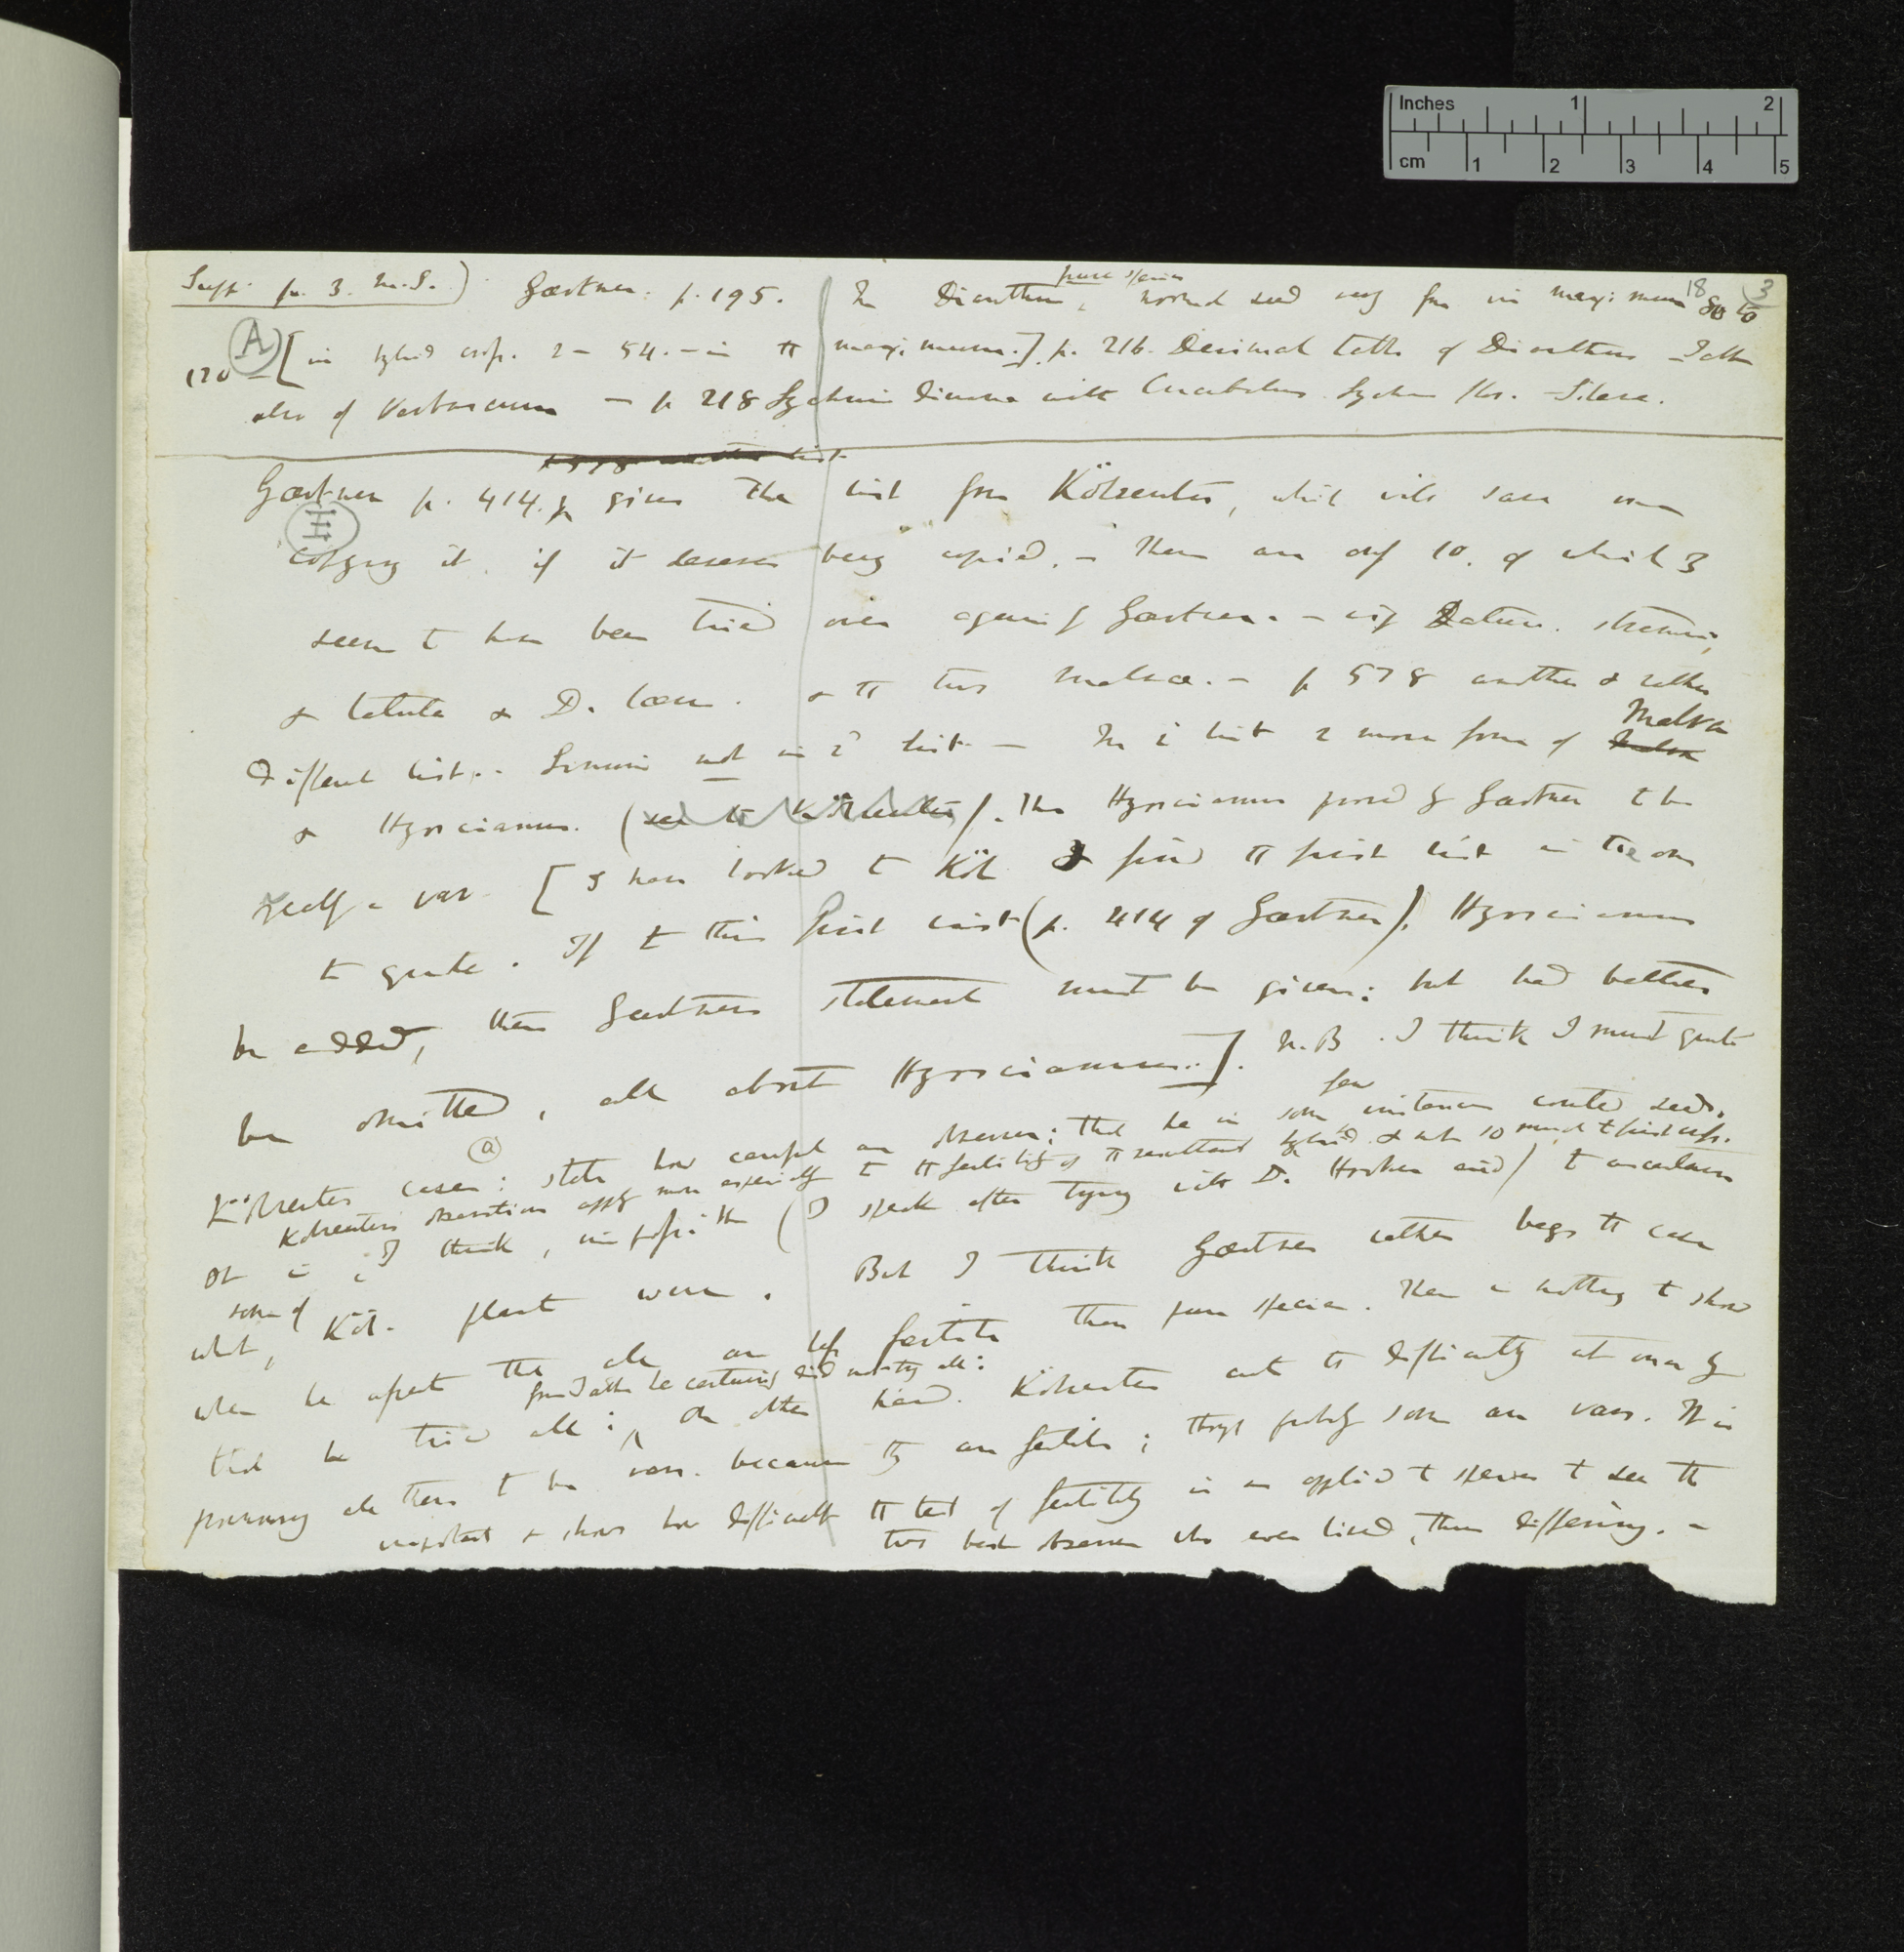 Inches 1 2
cm 1 2 3 4 5
3
18
Suppt p. 3. M.S.) Gærtner. p. 195. In Dianthus, pure species, normal seed vary from in maximum 80 to
A
120 — [in hybrid crop. 2 — 54. — in π maximum.] p. 216. Decimal table of Dianthus — Table
also of Verbascum — p 218 Lychnis diurna with Cucubalus Lychnis flos. Silene.
Gærtner p. 414. gives the list from Kölreuter, which will save me
copying it, if it deserves being copied. — There are only 10. of which 3
seem to have been tried over again by Gærtner. — viz Datura. stramonium,
& tatula & D. laev. & π two Malvæ. — p 578 another & rather
different list. Linum not in 2d list. — In list 2 more forms of Malva
& Hyoscianus. (see to Kölreuter). The Hyoscianus proved by Gærtner to be
really a var. [I have looked to Köl & find π first list is the one
to quote. If to this first list (p. 414 of Gærtner), Hyoscianus
be added, then Gærtners statement must be given; but had better
be omitted, all about Hyoscianus.]. N.B. I think I must quote
Kölreuter cases: state how careful an observer; that he in some few instances counted seeds.
(a) Kolreuters observations apply more especially to π fertility of π resultant hybrid & not so much to first cross.
It is I think, impossible (I speak after trying with Dr Hooker aid) to ascertain
what, some of Köl. plant were. But I think Gærtner rather begs π case
when he asserts that all are less fertile than pure species. There is nothing to show
that he tried all; found after he certainly did not try all: On other hand. Kölreuter cuts π difficulty at once by
pronouncing all these to be vars. because they are fertile; though probably some are vars. It is
important & shows how difficult π test of fertility is as applied to species to see the
two best observers who ever lived, thus differing. —